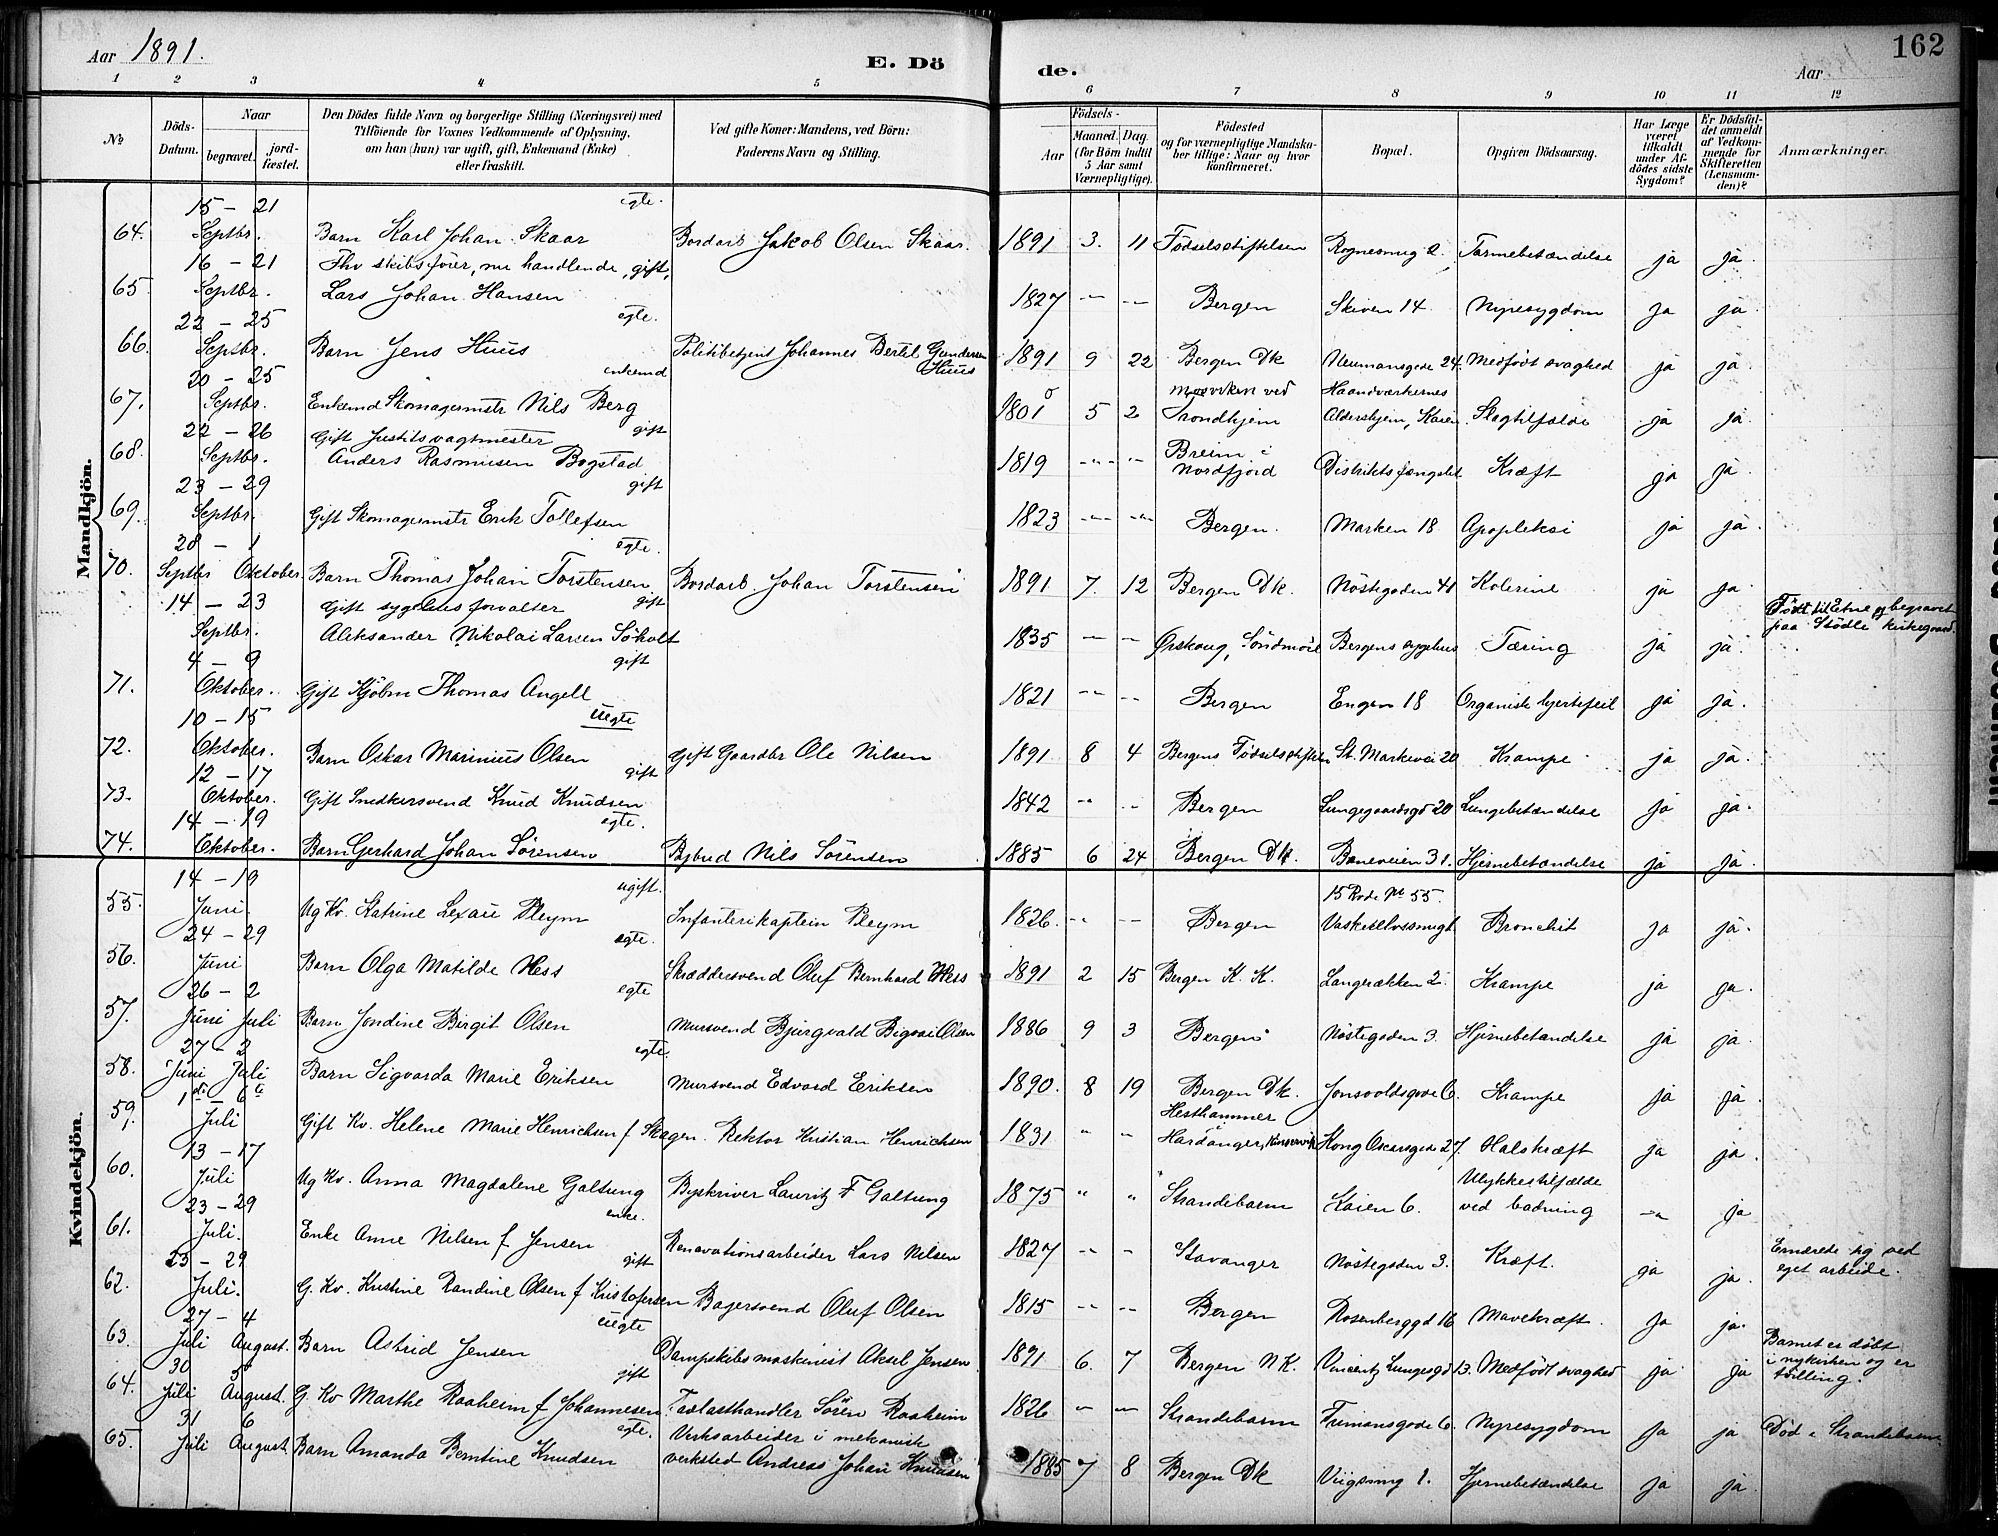 Aar 1891. E. Dö de. Aar 162
1 2 3 4 5 6 7 8 9 10 11 12
No
Döds-Datum.
Naar
begravet.
jordfæstet.
Den Dödes fulde Navn og borgerlige Stilling (Næringsvei) med
Tilföiende for Voxnes Vedkommende af Oplysning,
om han (hun) var ugift, gift, Enkemand (Enke)
eller fraskilt.
Ved gifte Koner: Mandens, ved Börn:
Faderens Navn og Stilling.
Födsels-
Aar
Maaned. Dag.
(for Börn indtil
5 Aar samt
Værnepligtige).
Födested
og for værnepligtige Mandska-
ber tillige: Naar og hvor
konfirmeret.
Bopæl.
Opgiven Dödsaarsag.
Har Læge
været
tilkaldt
under Af-
dödes sidste
Sygdom?
Er Dödsfal-
det anmeldt
af Vedkom-
mende for
Skifteretten
(Lensman-
den)?
Anmærkninger.
Mandkjön.
15 – 21 egte.
64. Septbr. Barn Karl Johan Skaar Bordarb. Jakob Olsen Skaar. 1891 3. 11 Födselsstiftelsen Rognesmug 2. Tarmebetændelse ja ja.
16 – 21 Fhv skibsförer, nu handlende, gift,
65. Septbr. Lars Johan Hansen 1827 – – Bergen Skiven 14 Nyresygdom ja ja.
22 – 25 egte.
66. Septbr. Barn Jens Huus Politibetjent Johannes Bertil Gundersen Huus 1891 9 22 Bergen Dk Neumansgade 24. Medfödt svaghed ja ja.
20 – 25 enkemd
67. Septbr. Enkemd Skomagermstr Nils Berg 1801 5 2 Mosviken ved Trondhjem Haandværkernes Aldershjem, Kaien Slagtilfælde ja ja.
22 – 26 Gift Justitsvagtmester gift
68. Septbr. Anders Rasmusen Bogstad 1819 – – Breim i Nordfjord Distriktsfængslet Kræft ja ja.
23 – 29 gift
69. Septbr. Gift Skomagermstr Erik Tollefsen 1823 – – Bergen. Marken 18 Apopleksi ja ja.
28 – 1 egte.
70. Septbr Oktober. Barn Thomas Johan Torstensen Bordarb. Johan Torstensen 1891 7. 12 Bergen Dk. Nöstegaden 41 Kolerine ja ja.
14 – 23 Gift sygehusforvalter gift
Septbr. Aleksander Nikolai Larsen Söholt 1835 – – Ørskoug, Söndmöre Bergens sygehus Tæring ja ja. Födt til Etne og begravet paa Stödle kirkegaard.
4 – 9 gift
71. Oktober. Gift Kjöbm Thomas Angell 1821 – – Bergen Engen 18 Organisk hjertefeil ja ja.
10 – 15 uegte
72. Oktober. Barn Oskar Marinius Olsen Gift Gaardbr Ole Nilsen 1891 8 4 Bergens Födselsstiftelse St. Markevei 20 Krampe ja ja.
12 – 17 gift
73. Oktober. Gift Snedkersvend Knud Knudsen 1842 – – Bergen Lungegaardsgd 20 Lungebetændelse ja ja.
14 – 19 egte.
74. Oktober. Barn Gerhard Johan Sörensen Bybud Nils Sörensen 1885 6 24 Bergen Dk. Baneveien 31. Hjernebetændelse ja ja.
Kvindekjön.
14 – 19 ugift.
55. Juni. Ug Kv. Katrine Lexau Pleym Infanterikaptein Pleym 1826. – – Bergen 15 Rode No 55. Bronchit ja ja.
24 – 29 egte.
56. Juni Barn Olga Matilde Hess Skræddersvend Oluf Bernhard Hess 1891 2 15 Bergen K. K. Langerækken 2. Krampe ja ja.
26 – 2 egte
57. Juni Juli Barn Jondine Birgit Olsen Mursvend Olsen 1886 9 3 Bergen Nöstegaden 3. Hjernebetændelse ja ja.
27 – 2 egte.
58. Juni Juli Barn Sigvarda Marie Eriksen Mursvend Edvard Eriksen 1890. 8 19 Bergen Dk. Jonsvoldsgade 6. Krampe ja ja.
1 – 6
59. Juli Gift Kv. Helene Marie Henrichsen f Skagen. Rektor Kristian Henrichsen 1831 " " Hesthammer i Hardanger, Kinservik Kong Oscarsgade 27. Halskræft ja ja.
13 – 17
60. Juli Ug Kv. Anna Magdalene Galtung Byskriver Lauritz F Galtung 1875 " " Strandebarm Kaien 6. Ulykkestilfælde ved badning – ja
23 – 29 enke.
61. Juli. Enke Anne Nilsen f Jensen Renovationsarbeider Lars Nilsen 1827 – – Stavanger Nöstegaden 3. Kræft. ja ja. Ernærede sig ved eget arbeide.
23 – 29 gift
62. Juli. G. Kv. Kristine Randine Olsen f Kristofersen Bagersvend Oluf Olsen 1815 – – Bergen Rosenberggd 16 Mavekræft. ja ja.
27 – 4 uegte
63. Juli August. Barn Astrid Jensen Dampskibsmaskinist Aksel Jensen 1891 6. 7 Bergen N. K. Vincentz Lungesgd 13. Medfödt svaghed ja ja Barnet er döbt i nykirken og er tvilling.
30 5 gift
64. Juli August. G. Kv Marthe Raaheim f Johannesen Sören Raaheim 1826 – – Strandebarm 6. Nyresygdom ja ja Död i Strandebarm
31 6 egte.
65. Juli August. Barn Amanda Berntine Knudsen Verksarbeider i mekanisk verksted Andreas Johan Knudsen 1885 7 8 Bergen Dk 1. Hjernebetændelse ja ja.